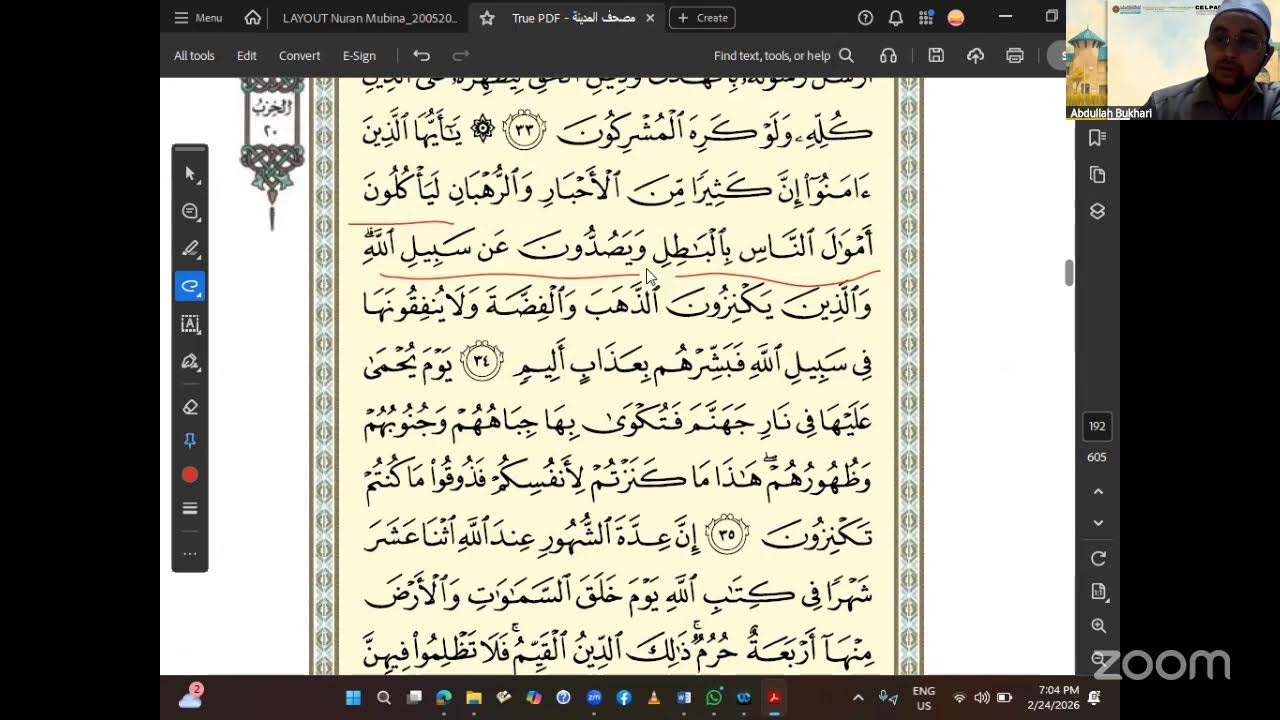 Menu
LAYOUT Nuran Mubina_200520...
True PDF - مصحف المدينة
Create
All tools
Edit
Convert
E-Sign
Find text, tools, or help
Abdullah Bukhari
الحزب
٢٠
كُلِّهِۦ وَلَوۡ كَرِهَ ٱلۡمُشۡرِكُونَ ٣٣ ۞ يَٰٓأَيُّهَا ٱلَّذِينَ
ءَامَنُوٓاْ إِنَّ كَثِيرٗا مِّنَ ٱلۡأَحۡبَارِ وَٱلرُّهۡبَانِ لَيَأۡكُلُونَ
أَمۡوَٰلَ ٱلنَّاسِ بِٱلۡبَٰطِلِ وَيَصُدُّونَ عَن سَبِيلِ ٱللَّهِۗ
وَٱلَّذِينَ يَكۡنِزُونَ ٱلذَّهَبَ وَٱلۡفِضَّةَ وَلَا يُنفِقُونَهَا
فِي سَبِيلِ ٱللَّهِ فَبَشِّرۡهُم بِعَذَابٍ أَلِيمٖ ٣٤ يَوۡمَ يُحۡمَىٰ
عَلَيۡهَا فِي نَارِ جَهَنَّمَ فَتُكۡوَىٰ بِهَا جِبَاهُهُمۡ وَجُنُوبُهُمۡ
وَظُهُورُهُمۡۖ هَٰذَا مَا كَنَزۡتُمۡ لِأَنفُسِكُمۡ فَذُوقُواْ مَا كُنتُمۡ
تَكۡنِزُونَ ٣٥ إِنَّ عِدَّةَ ٱلشُّهُورِ عِندَ ٱللَّهِ ٱثۡنَا عَشَرَ
شَهۡرٗا فِي كِتَٰبِ ٱللَّهِ يَوۡمَ خَلَقَ ٱلسَّمَٰوَٰتِ وَٱلۡأَرۡضَ
مِنۡهَآ أَرۡبَعَةٌ حُرُمٞۚ ذَٰلِكَ ٱلدِّينُ ٱلۡقَيِّمُۚ فَلَا تَظۡلِمُواْ فِيهِنَّ
192
605
zoom
2
ENG
US
7:04 PM
2/24/2026